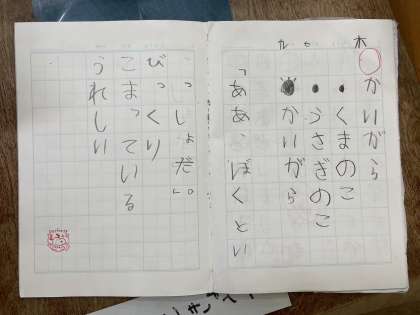 かいがら
くまのこ
うさぎのこ
かいがら
「ああ、ぼくとい
っしょだ。」
びっくり
こまっている
うれしい